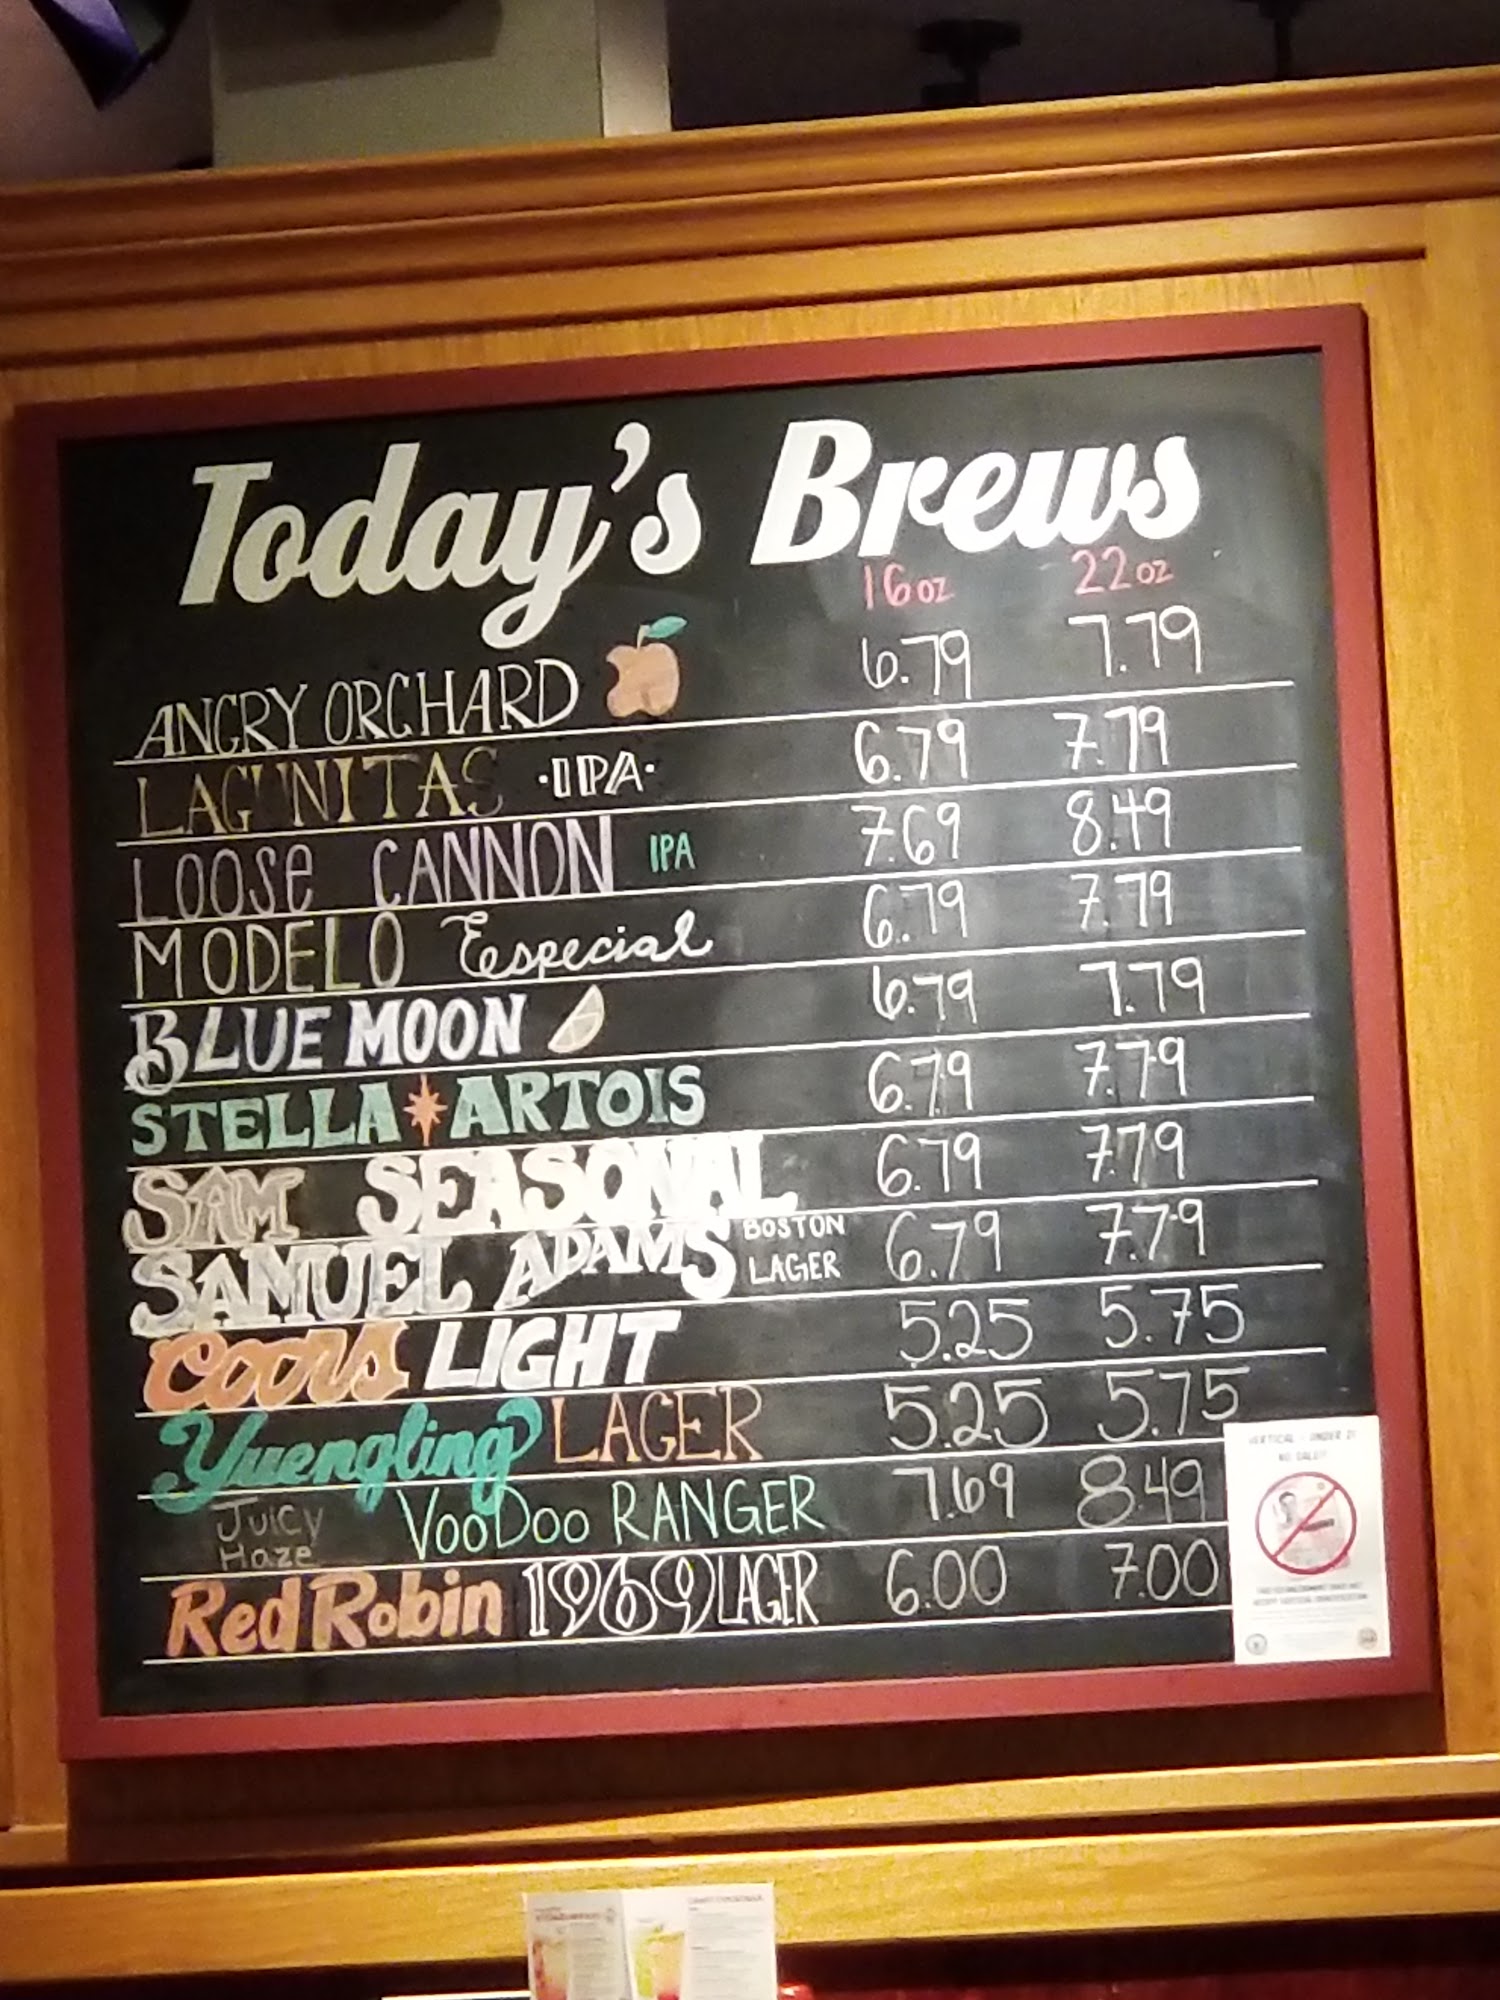 Today's Brews
16oz 22oz
ANGRY ORCHARD 6.79 7.79
LAGUNITAS ·IPA· 6.79 7.79
LOOSE CANNON IPA 7.69 8.49
MODELO Especial 6.79 7.79
BLUE MOON 6.79 7.79
STELLA ARTOIS 6.79 7.79
SAM SEASONAL 6.79 7.79
SAMUEL ADAMS BOSTON LAGER 6.79 7.79
Coors LIGHT 5.25 5.75
Yuengling LAGER 5.25 5.75
Juicy Haze VooDoo RANGER 7.69 8.49
Red Robin 1969 LAGER 6.00 7.00
VERTICAL = UNDER 21
NO SALE!!